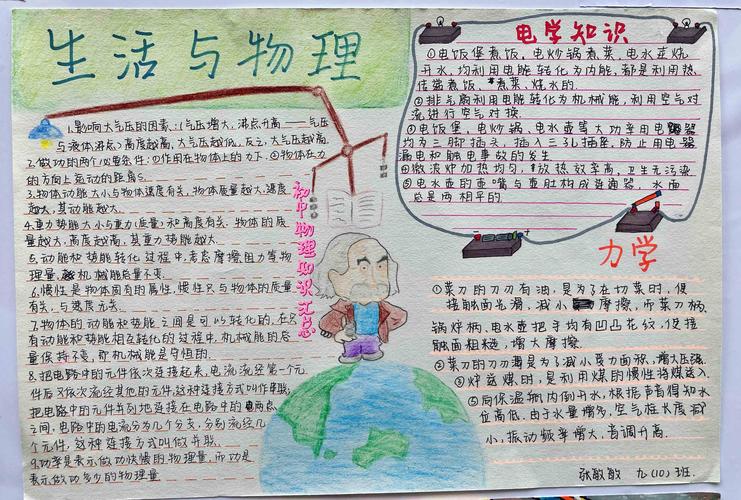 生活与物理
1.影响大气压的因素:(气压增大,沸点升高——气压
与液体沸点)高度越高,大气压越低,反之,大气压越高
2.做功的两个必要条件:①作用在物体上的力下,②物体在力
的方向上运动的距离S
3.物体动能大小与物体速度有关,物体质量越大,速度
越大,其动能越大.
4.重力势能大小与重力(质量)和高度有关,物体的质
量越大,高度越高,其重力势能越大.
5.动能和势能转化过程中,考虑摩擦阻力等物
理量,机械能总量不变.
6.惯性是物体固有的属性,惯性只与物体的质量
有关,与速度无关.
7.物体的动能和势能之间是可以转化的,在只
有动能和势能相互转化的过程中,机械能的总
量保持不变,即机械能是守恒的.
8.把电路中的元件依次连接起来,电流流经第一个元
件后又依次流经其他的元件,这种连接方式叫作串联;
把电路中的元件并列地连接在电路中的两点
之间,电路中的电流分为几个分支,分别流经几
个元件,这种连接方式叫做并联.
9.功率是表示做功快慢的物理量,而功是
表示做功多少的物理量
初中物理知识汇总
电学知识
①电饭堡煮饭,电炒锅煮菜,电水壶烧
开水,均利用电能转化为内能,都是利用热
传递煮饭,煮菜,烧水的.
②排气扇利用电能转化为机械能,利用空气对
流进行空气对换.
③电饭堡,电炒锅,电水壶等大功率用电器
均为三脚插头,插入三孔插座,防止用电器
漏电和触电事故的发生
④微波炉加热均匀,放热效率高,卫生无污染
⑤电水壶的壶嘴与壶肚构成连通器,水面
总是两相平的.
力学
①菜刀的刀刃有油,是为了在切菜时,使
接触面光滑,减小摩擦,而菜刀柄,
锅炉柄,电水壶把手均有凹凸花纹,使接
触面粗糙,增大摩擦.
②菜刀的刀刃薄是为了减小受力面积,增大压强.
③炉送煤时,是利用煤的惯性将煤送入.
⑤向保温瓶内倒开水,根据声音得知水
位高低.由于水量增多,空气柱长度减
小,振动频率增大,音调升高.
张敏敏 九(10)班.